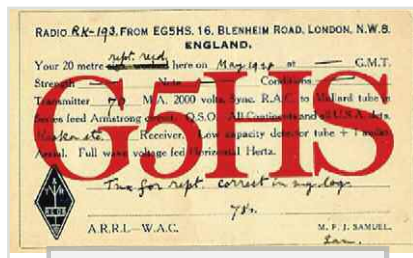 RADIO RK-193, FROM EG5HS, 16, BLENHEIM ROAD, LONDON, N.W.8.
ENGLAND.
rept. recd
Your 20 metre here on May 1928 at — G.M.T.
Strength — Note — Conditions —
Transmitter 70 M.A. 2000 volts, Sync. R.A.C. to Mullard tube in
Series feed Armstrong circuit. Q.S.O. All Continents and all U.S.A. dists.
Alaska etc. Receiver, Low capacity detector tube + 1
Aerial. Full wave voltage fed Horizontal Hertz.
G5HS
Tnx for rept. correct in my log.
73s.
A.R.R.L—W.A.C.
M. F. J. SAMUEL.